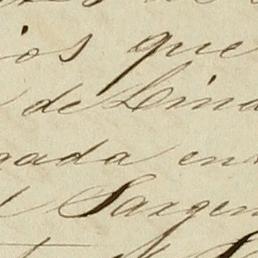 ios que
de Lina
gada en
l Sargen